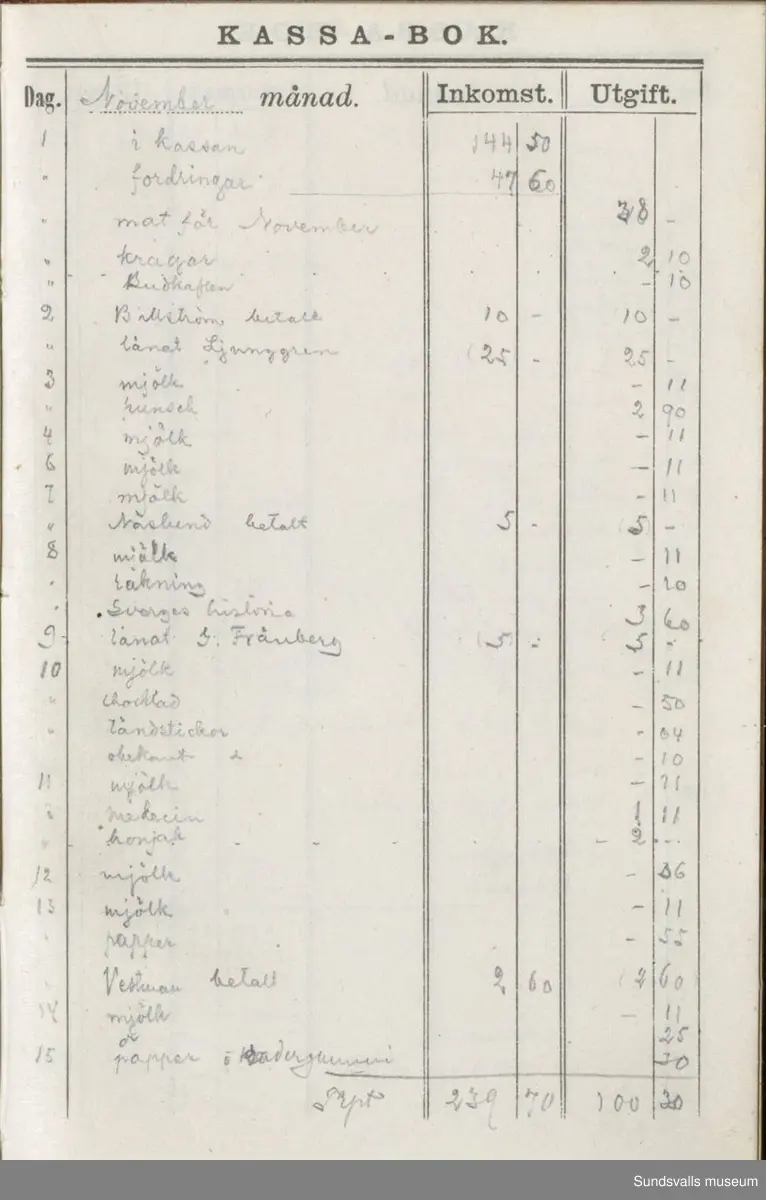 KASSA-BOK.
Dag. November månad. Inkomst. Utgift.
1 i kassan 144 50
" fordringar 47 60
" mat för November 38 -
" kragar 2 10
" Budkaflen - 10
2 Billström betalt 10 - 10 -
" lånat Ljunggren 25 - 25 -
3 mjölk - 11
" punsch 2 90
4 mjölk - 11
6 mjölk - 11
7 mjölk - 11
" Näslund betalt 5 - 5 -
8 mjölk - 11
" räkning - 20
" Sverges historia 3 60
9 lånat G. Frånberg 5 - 5 -
10 mjölk - 11
" choklad - 50
" tändstickor - 04
obekant - 10
11 mjölk - 11
" medecin 1 11
" konjak - - - - - 2 -
12 mjölk - 06
13 mjölk - 11
" papper - 55
Vestman betalt 2 60 2 60
14 mjölk - 11
öl 25
15 papper o radergummi 30
Tspt 239 70 100 30
Sundsvalls museum